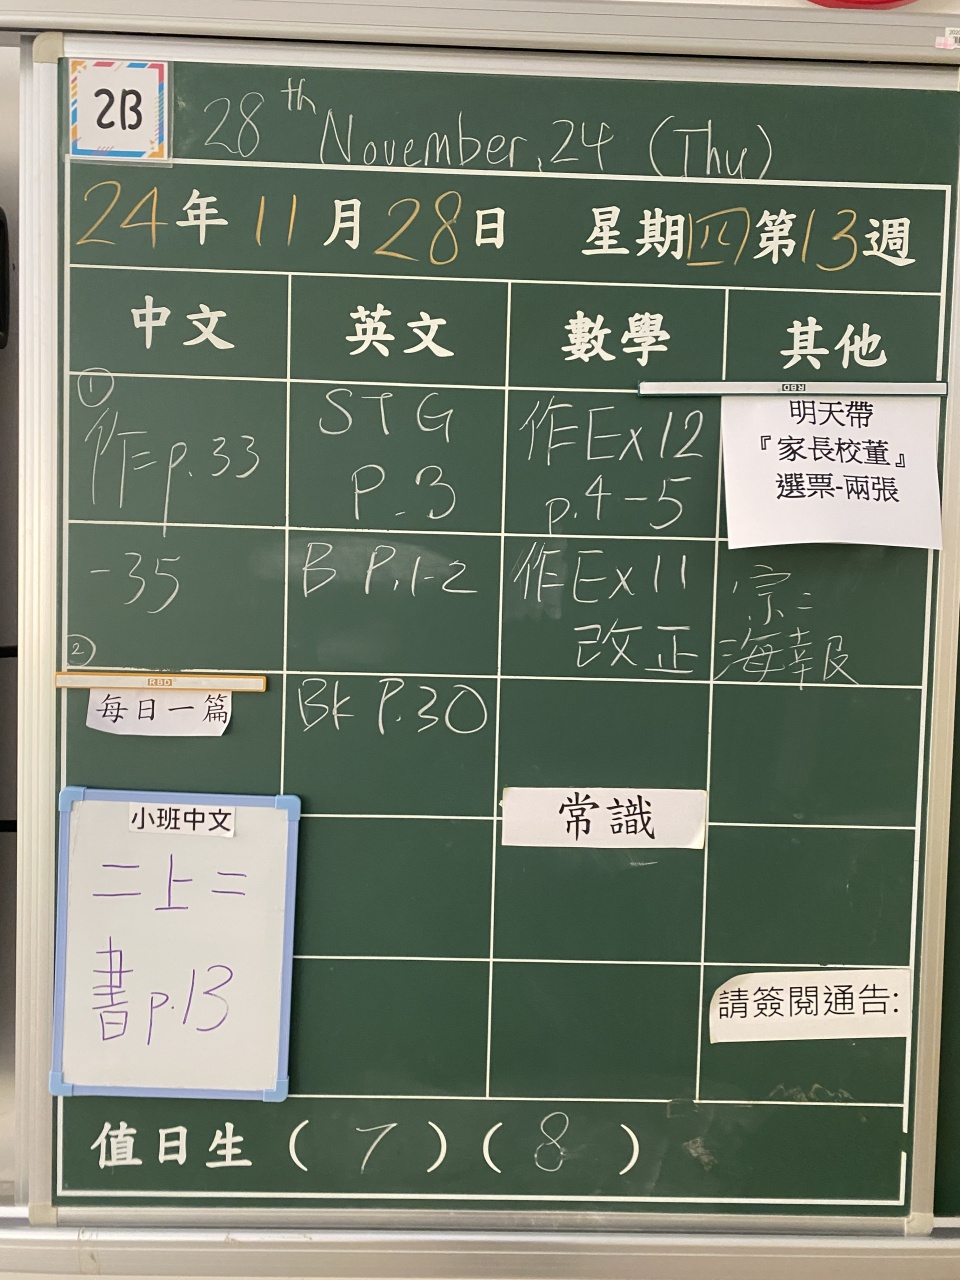 2B
28th November, 24 (Thu)
24年11月28日 星期四第13週
中文
英文
數學
其他
①
作二p.33
-35
②
每日一篇
小班中文
二上二
書p.13
STG
P.3
B P.1-2
BK P.30
作Ex12
p.4-5
作Ex11
改正
常識
RBD
明天帶
『家長校董』
選票-兩張
宗:
海報
請簽閱通告:
RBD
值日生(7)(8)